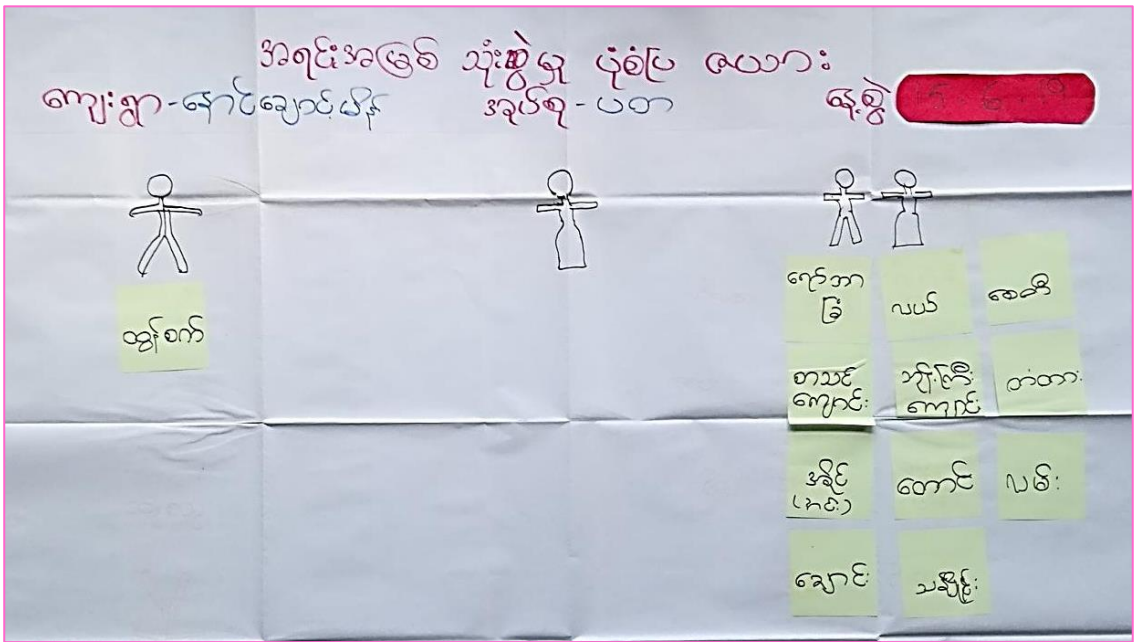 အရင်းအမြစ် သုံးစွဲမှု ပုံစံပြ ဇယား
ကျေးရွာ-နောင်ချောင့်ယိန် အုပ်စု-ပတ နေ့စွဲ
ထွန်စက်
ရော်ဘာ
ခြံ
လယ်
စေတီ
စာသင်
ကျောင်း
ဘုန်းကြီး
ကျောင်း
တံတား
အိုင်
(အင်း)
တောင်
လမ်း
ချောင်း
သချိုင်း